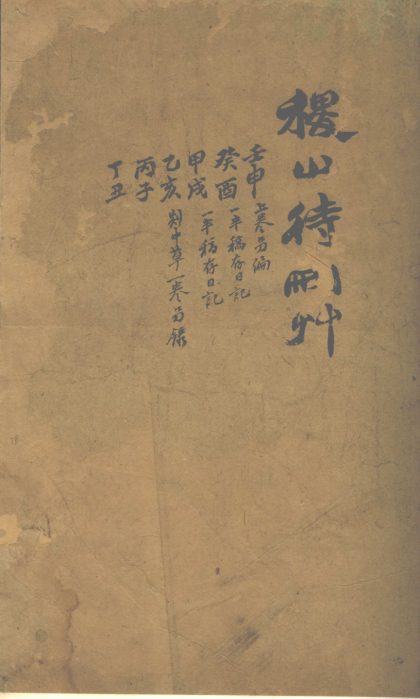 稷山待删艸
壬申 上卷另編
癸酉 一半稿存日記
甲戌 一半稿存日記
乙亥 對中草一卷另錄
丙子
丁丑